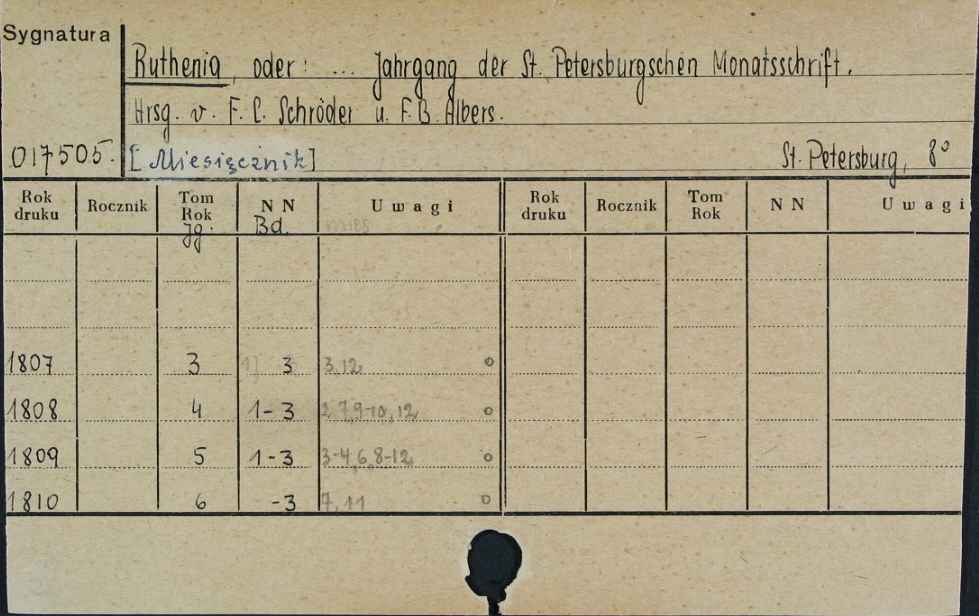 Sygnatura
Ruthenia, oder: ... Jahrgang der St. Petersburgschen Monatsschrift.
Hrsg. v. F. C. Schröder u. F. B. Albers.
017505. [Miesięcznik] St. Petersburg, 8°
Rok druku Rocznik Tom Rok NN Uwagi Rok druku Rocznik Tom Rok NN Uwagi
Jg. Bd.
1807 3 3 3,12 o
1808 4 1-3 2,7,9-10,12 o
1809 5 1-3 3-4,6,8-12 o
1810 6 -3 7,11 o